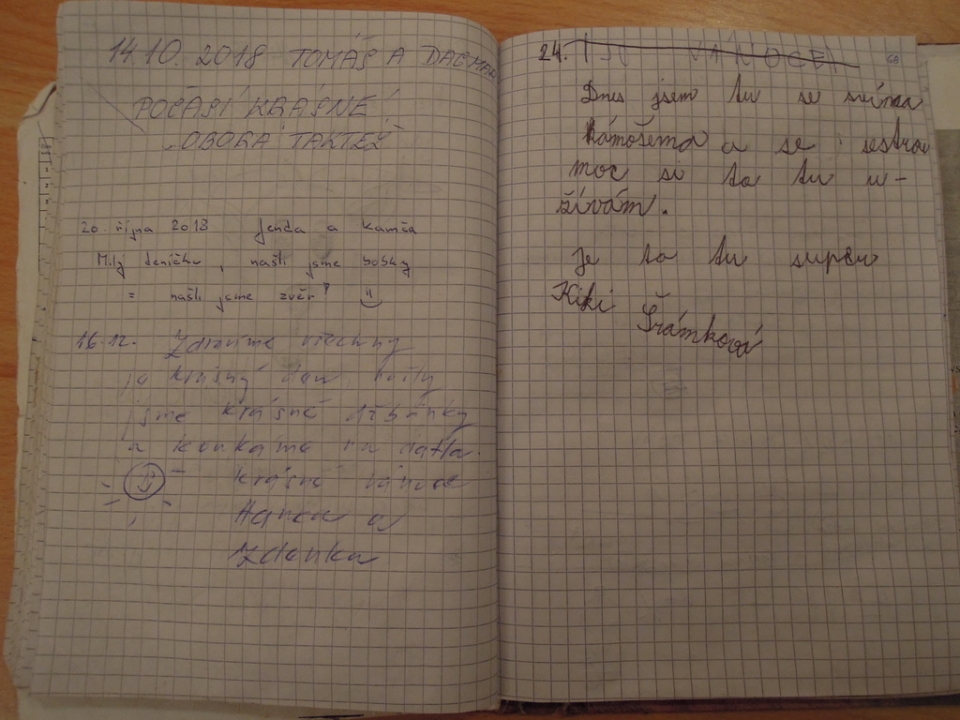 14.10. 2018 TOMÁŠ A DAGMAR
POČASÍ KRÁSNÉ!
OBORA TAKTÉŽ
20. října 2018 Jenda a Kamča
Milý deníčku, našli jsme bobky
= našli jsme zvěř! ü
16.12. Zdravíme všechny
je krásný den, našly
jsme krásné džbánky
a koukáme na datla.
Krásné vánoce
Hanka a
Zdenka
24. VÁNOCE!
Dnes jsem tu se svíma
kámošema a se sestrou
moc si to tu u-
žívám.
Je to tu super
Kiki Šrámková